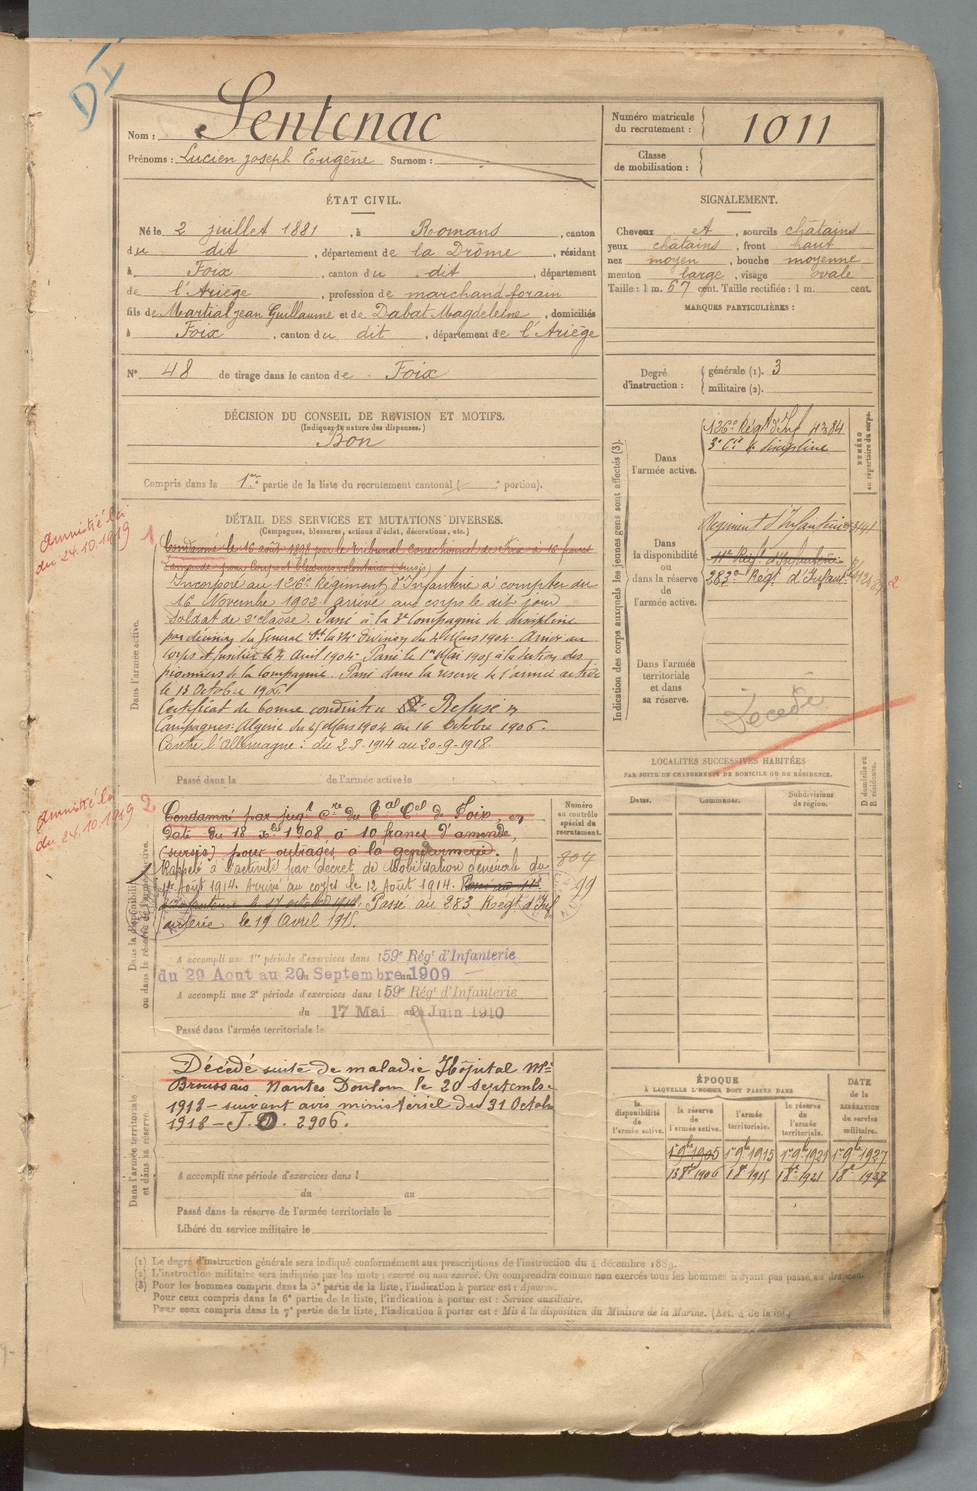 DI
Nom : Sentenac
Prénoms : Lucien Joseph Eugène Surnom :
Numéro matricule du recrutement : 1011
Classe de mobilisation :
ÉTAT CIVIL.
Né le 2 juillet 1881, à Romans, canton
du dit, département de la Drôme, résidant
à Foix, canton du dit, département
de l'Ariège, profession de marchand forain
fils de Martial Jean Guillaume et de Dabat Magdeleine, domiciliés
à Foix, canton du dit, département de l'Ariège
N° 48 de tirage dans le canton de Foix
SIGNALEMENT.
Cheveux et, sourcils châtains
yeux châtains, front haut
nez moyen, bouche moyenne
menton large, visage ovale
Taille : 1 m. 67 cent. Taille rectifiée : 1 m. cent.
MARQUES PARTICULIÈRES :
Degré d'instruction : générale (1). 3
militaire (2).
DÉCISION DU CONSEIL DE REVISION ET MOTIFS.
(Indiquer la nature des dispenses.)
Bon
Compris dans la 1re partie de la liste du recrutement cantonal ( portion).
Indication des corps auxquels les jeunes gens sont affectés (3).
NUMÉRO au répertoire du corps.
Dans l'armée active.
126e Régt d'Inf 4384
3e Cie de discipline
Dans la disponibilité ou dans la réserve de l'armée active.
Régiment d'Infanterie
283e Régt d'Infant.
2
Dans l'armée territoriale et dans sa réserve.
Décédé
DÉTAIL DES SERVICES ET MUTATIONS DIVERSES.
(Campagnes, blessures, actions d'éclat, décorations, etc.)
Amnistié loi
du 24.10.1919
1
Dans l'armée active.
Condamné le 16 août 1898 par le tribunal correctionnel de Foix à 16 francs
d'amende pour coups et blessures volontaires (sursis)
Incorporé au 126e Régiment d'Infanterie à compter du
16 Novembre 1902 arrivé au corps le dit jour
Soldat de 2e classe. Passé à la 3e Compagnie de discipline
par décision du Général
corps Passé le 1er Mai 1905 à la section des
pionniers de la compagnie. Passé dans la réserve de l'armée active
le 13 Octobre 1906.
Certificat de bonne conduite Refusé
Campagnes: Algérie du 25 Mars 1904 au 16 Octobre 1906.
Contre l'Allemagne : du 2-8-1914 au 20-9-1918.
Passé dans la de l'armée active le
LOCALITÉS SUCCESSIVES HABITÉES
PAR SUITE DE CHANGEMENTS DE DOMICILE OU DE RÉSIDENCE.
Dates. Communes. Subdivisions de région. D domicile ou R résidence.
Amnistié loi
du 24.10.1919
2
Dans la disponibilité ou dans la réserve de l'armée active.
Numéro au contrôle spécial du recrutement.
804
99
Condamné par jugt cre du Cal Cel de Foix, en
date du 18 Xbre 1908 à 10 francs d'amende,
(sursis) pour outrages à la gendarmerie.
Rappelé à l'activité par décret de Mobilisation générale du
1er Août 1914. Arrivé au corps le 12 Août 1914. Passé au
d'Infanterie le 17 octobre 1914. Passé au 283 Régt d'Inf
anterie le 19 Avril 1915.
A accompli une 1re période d'exercices dans l 59e Régt d'Infanterie
du 29 Aout au 20 Septembre 1909
A accompli une 2e période d'exercices dans l 59e Régt d'Infanterie
du 17 Mai au 2 Juin 1910
Passé dans l'armée territoriale le
Dans l'armée territoriale et dans sa réserve.
Décédé suite de maladie Hôpital Mre
Broussais Nantes Doulon le 20 septembre
1918 - suivant avis ministériel du 31 Octobre
1918 - J.D. 2906.
A accompli une période d'exercices dans l
du au
Passé dans la réserve de l'armée territoriale le
Libéré du service militaire le
ÉPOQUE
À LAQUELLE L'HOMME DOIT PASSER DANS
la disponibilité de l'armée active. la réserve de l'armée active. l'armée territoriale. la réserve de l'armée territoriale.
DATE de la LIBÉRATION du service militaire.
1er 9bre 1905 1er 9bre 1915 1er 9bre 1921 1er 9bre 1927
13 8bre 1906 1 8bre 1915 1 8bre 1921 1 8bre 1927
(1) Le degré d'instruction générale sera indiqué conformément aux prescriptions de l'instruction du 4 décembre 1889.
(2) L'instruction militaire sera indiquée par les mots : exercé ou non exercé. On comprendra comme non exercés tous les hommes n'ayant pas passé au drapeau.
(3) Pour les hommes compris dans la 5e partie de la liste, l'indication à porter est : Ajourné.
Pour ceux compris dans la 6e partie de la liste, l'indication à porter est : Service auxiliaire.
Pour ceux compris dans la 7e partie de la liste, l'indication à porter est : Mis à la disposition du Ministre de la Marine. (Art. 4 de la loi.)